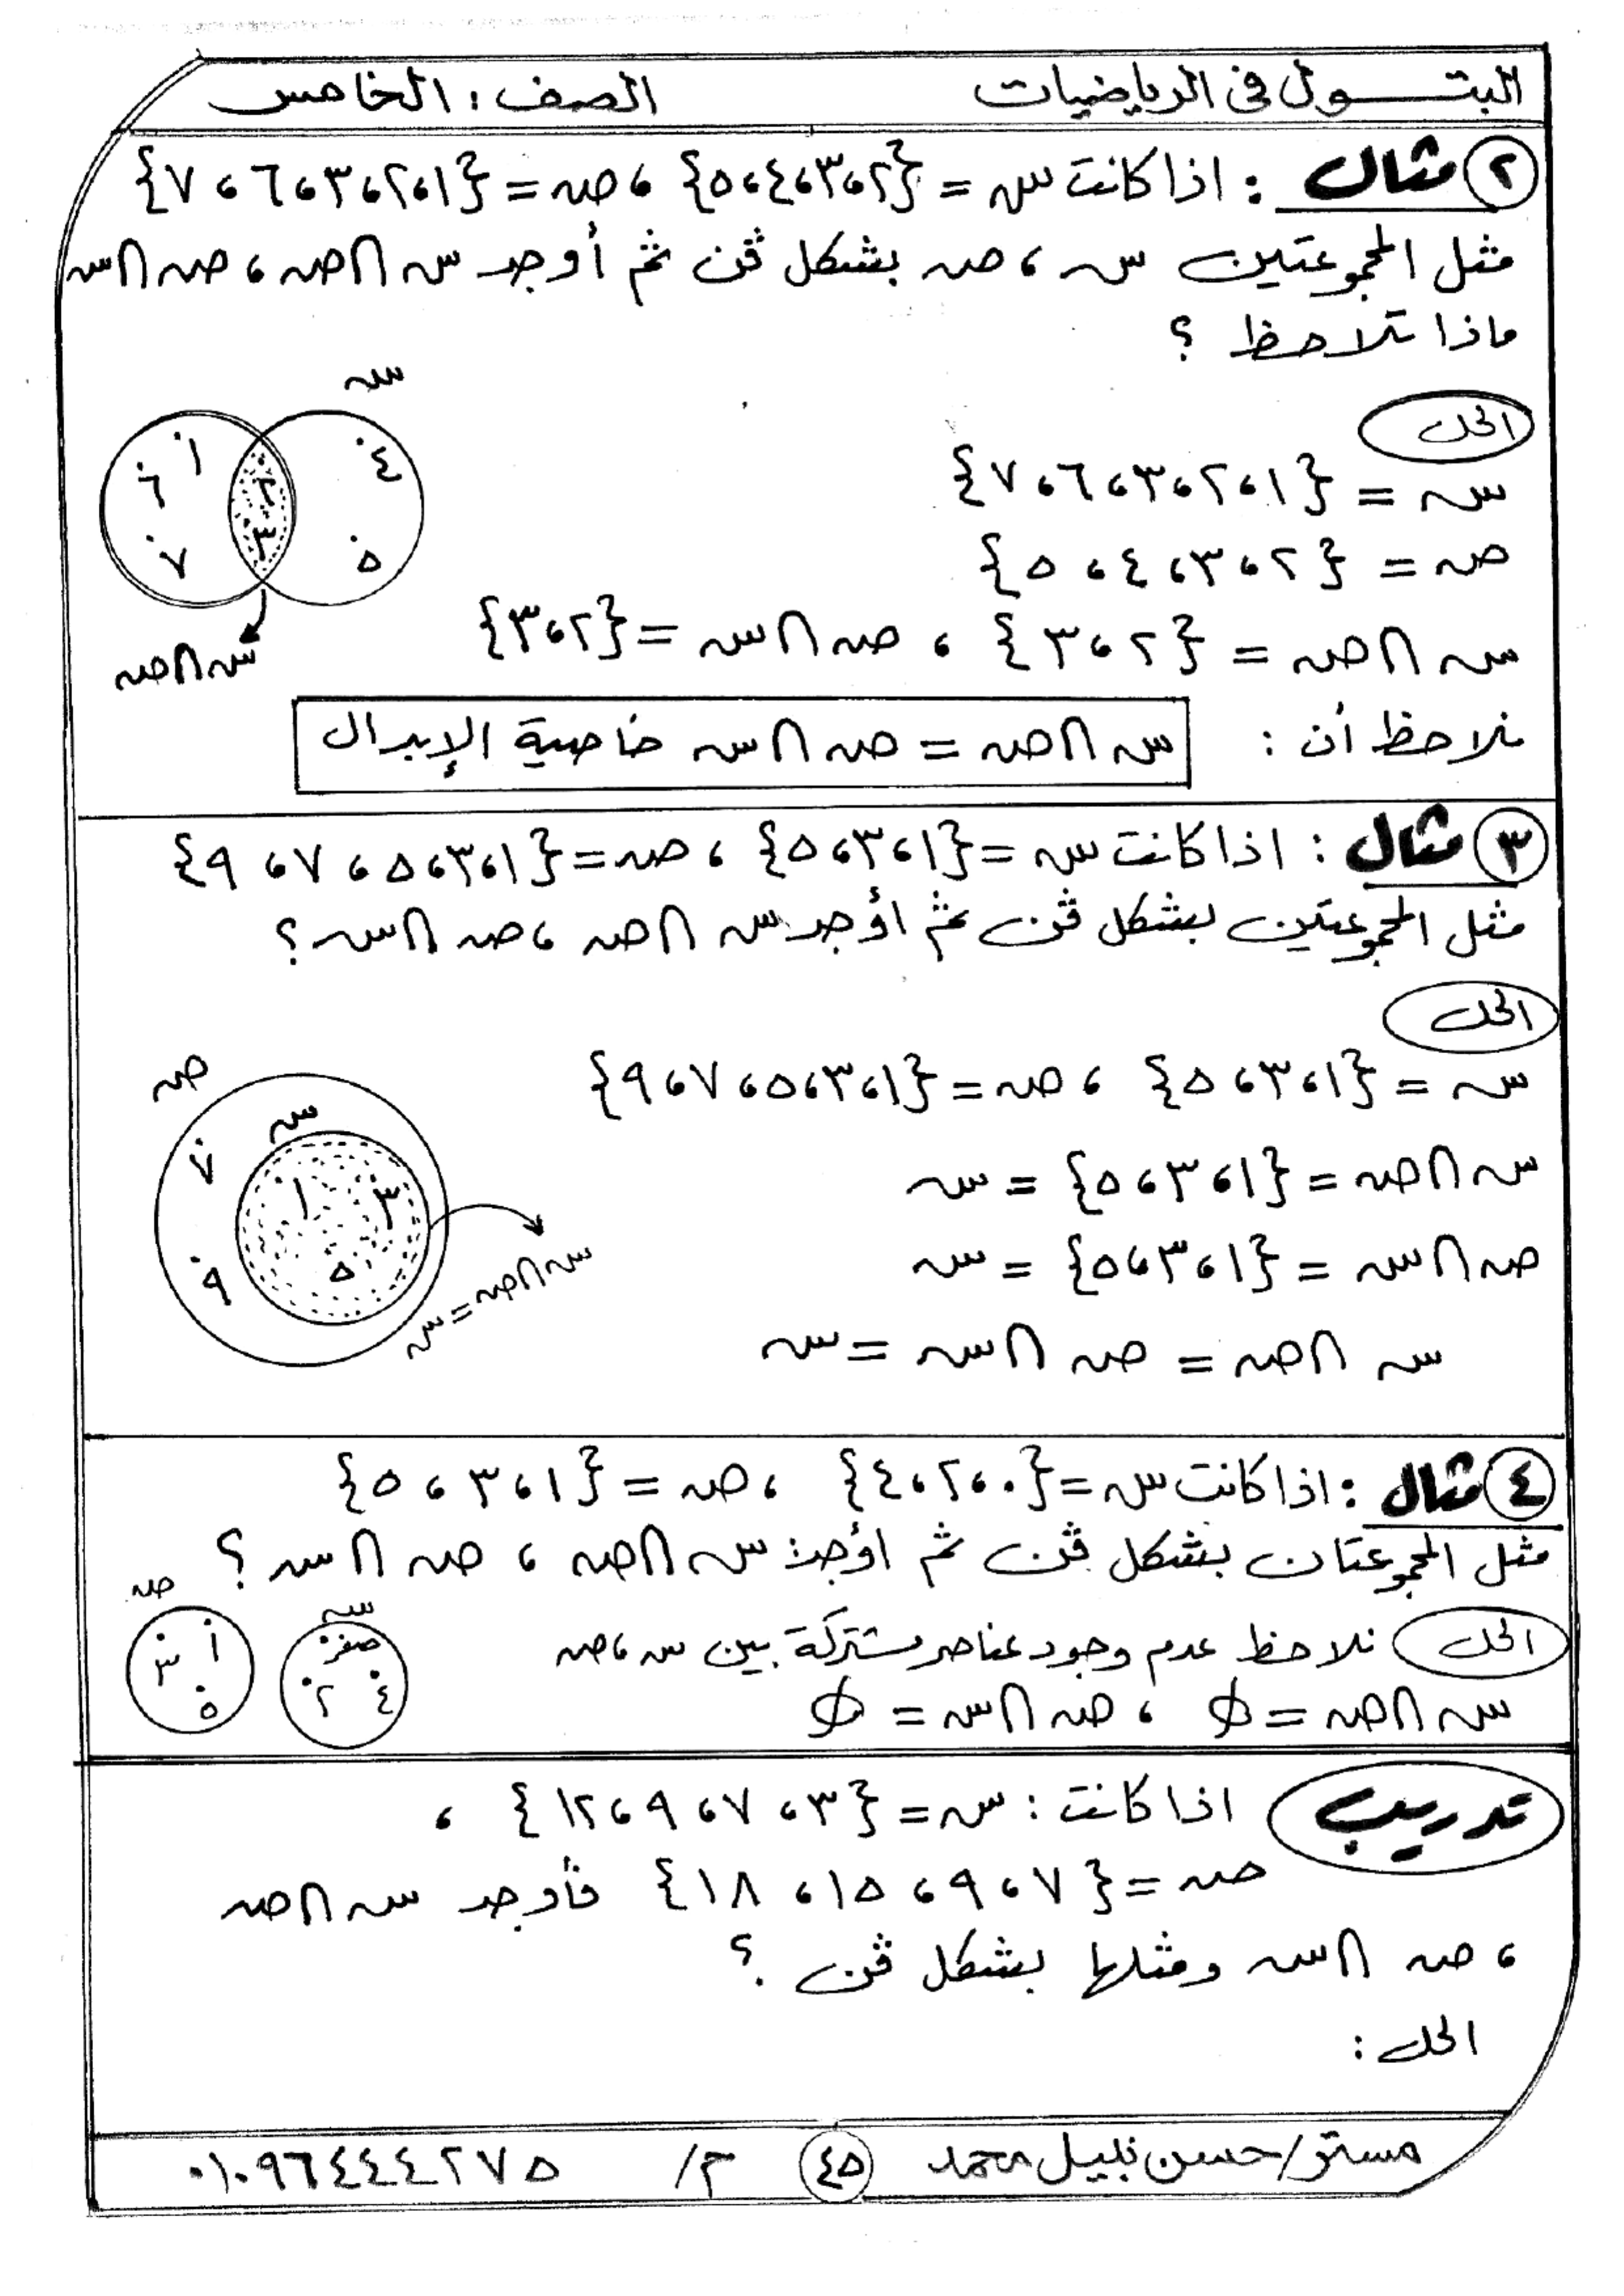 البتول فى الرياضيات الصف : الخامس
٢ مثال : اذا كانت س = {٢ ، ٣ ، ٤ ، ٥} ، ص = {١ ، ٢ ، ٣ ، ٦ ، ٧}
مثل المجموعتين س ، ص بشكل ڤن ثم أوجد س ∩ ص ، ص ∩ س
ماذا تلاحظ ؟
الحل
س = {١ ، ٢ ، ٣ ، ٦ ، ٧}
ص = {٢ ، ٣ ، ٤ ، ٥}
س ∩ ص = {٢ ، ٣} ، ص ∩ س = {٢ ، ٣}
س
٤ ٢ ١ ٦
٥ ٣ ٧
س ∩ ص
نلاحظ أن : س ∩ ص = ص ∩ س خاصية الإبدال
٣ مثال : اذا كانت س = {١ ، ٣ ، ٥} ، ص = {١ ، ٣ ، ٥ ، ٧ ، ٩}
مثل المجموعتين بشكل ڤن ثم اؤجد س ∩ ص ، ص ∩ س ؟
الحل
س = {١ ، ٣ ، ٥} ، ص = {١ ، ٣ ، ٥ ، ٧ ، ٩}
س ∩ ص = {١ ، ٣ ، ٥} = س
ص ∩ س = {١ ، ٣ ، ٥} = س
س ∩ ص = ص ∩ س = س
ص
س
٧
٣ ١
٥ ٩
س ∩ ص = س
٤ مثال : اذا كانت س = {٠ ، ٢ ، ٤} ، ص = {١ ، ٣ ، ٥}
مثل المجموعتان بشكل ڤن ثم اؤجد: س ∩ ص ، ص ∩ س ؟
الحل نلاحظ عدم وجود عناصر مشتركة بين س ، ص
س ∩ ص = ∅ ، ص ∩ س = ∅
س ص
صفر ١ ٣
٤ ٢ ٥
تدريب اذا كانت : س = {٣ ، ٧ ، ٩ ، ١٢} ،
ص = {٧ ، ٩ ، ١٥ ، ١٨} فأوجد س ∩ ص
، ص ∩ س ومثلها بشكل ڤن ؟
الحل :
مستر/ حسن نبيل محمد ٤٥ م/ ٠١٠٩٦٤٤٤٢٧٥